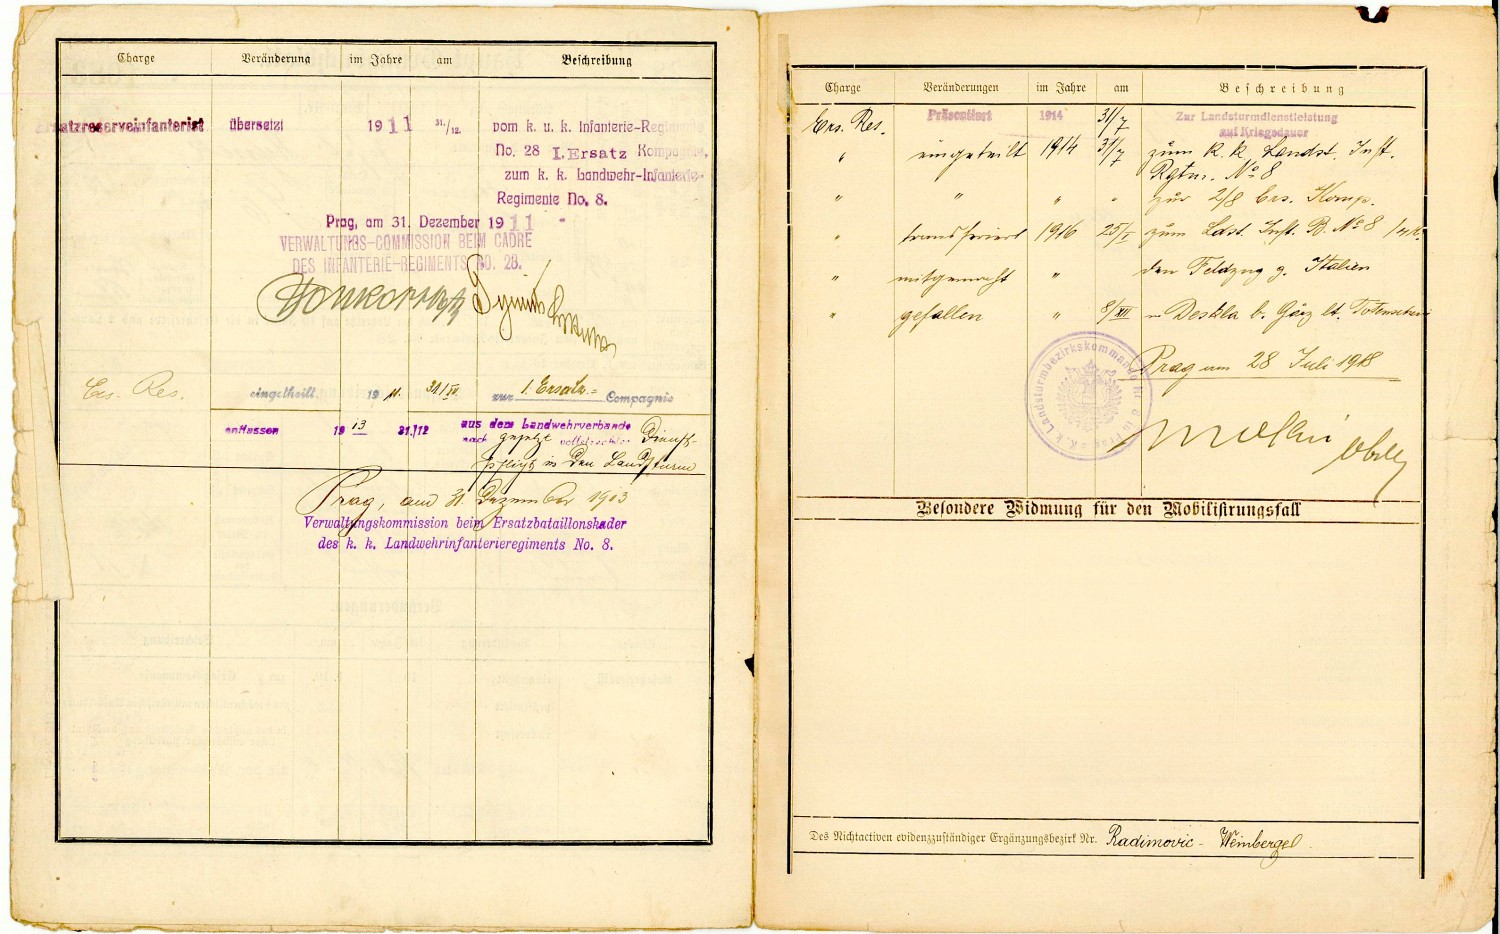 Charge Veränderung im Jahre am Beschreibung
Ersatzreserveinfanterist übersetzt 1911 31./12. vom k. u. k. Infanterie-Regimente
No. 28 I. Ersatz Kompagnie,
zum k. k. Landwehr-Infanterie-
Regimente No. 8.
Prag, am 31. Dezember 1911
VERWALTUNGS-COMMISSION BEIM CADRE
DES INFANTERIE-REGIMENTS NO. 28.
Ers. Res. eingetheilt 1911. 31/XII. zur 1. Ersatz.= Compagnie
entlassen 1913 31./12 aus dem Landwehrverbande
nach vollstreckter Dienst-
pflicht in den Landsturm
Prag, am 31 Dezember 1913
Verwaltungskommission beim Ersatzbataillonskader
des k. k. Landwehrinfanterieregiments No. 8.
Charge Veränderungen im Jahre am Beschreibung
Ers. Res. Präsentiert 1914 31/7 Zur Landsturmdienstleistung
auf Kriegsdauer
" eingeteilt 1914 31/7 zum k. k. Landst. Inft.
Rgtm. No 8
" " " " zur 2/8 Ers. Komp.
" transferiert 1916 25/I zum Ldst. Inft. B. No 8
" mitgemacht " den Feldzug g. Italien
" gefallen " 8/XII Deskla b. Görz lt. Totenschein
Prag am 28 Juli 1918
K. k. Landsturmbezirkskommando Nr 8 in Prag
Besondere Widmung für den Mobilisirungsfall
Des Nichtactiven evidenzzuständiger Ergänzungsbezirk Nr. Radimovic - Weinbergel.